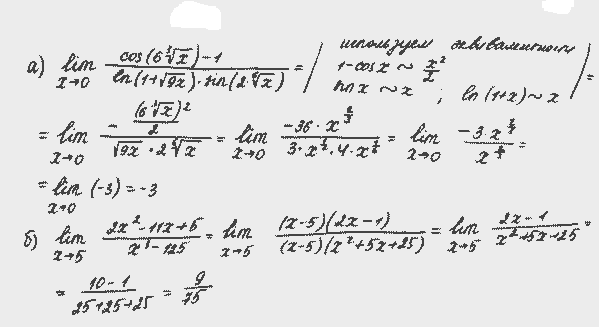 а) lim x→0 (cos(6∛x)-1)/(ln(1+√9x)·sin(2·⁶√x)) = / используем эквивалентности 1-cosx ~ x²/2 sinx ~ x ; ln(1+x) ~ x / =
= lim x→0 (-(6∛x)²/2)/(√9x · 2 ⁶√x) = lim x→0 (-36·x^(2/3))/(3·x^(1/2)·4·x^(1/6)) = lim x→0 (-3·x^(2/3))/(x^(2/3)) =
= lim x→0 (-3) = -3
б) lim x→5 (2x²-11x+5)/(x³-125) = lim x→5 ((x-5)(2x-1))/((x-5)(x²+5x+25)) = lim x→5 (2x-1)/(x²+5x+25) =
= (10-1)/(25+25+25) = 9/75